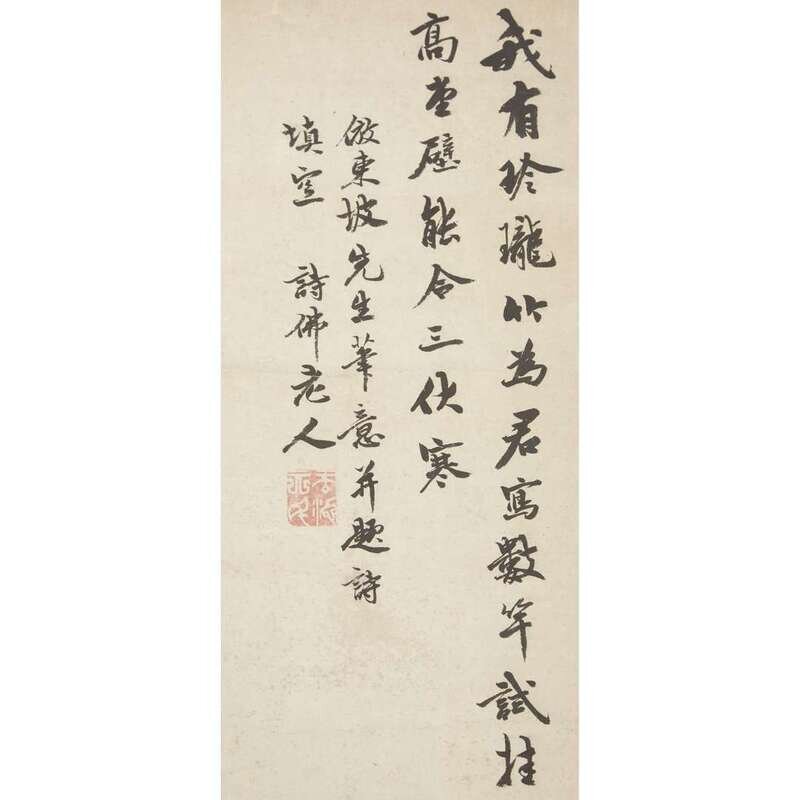 我有玲瓏竹為君寫數竿試挂
高堂壁能令三伏寒
倣東坡先生筆意并題詩
填空 詩佛老人